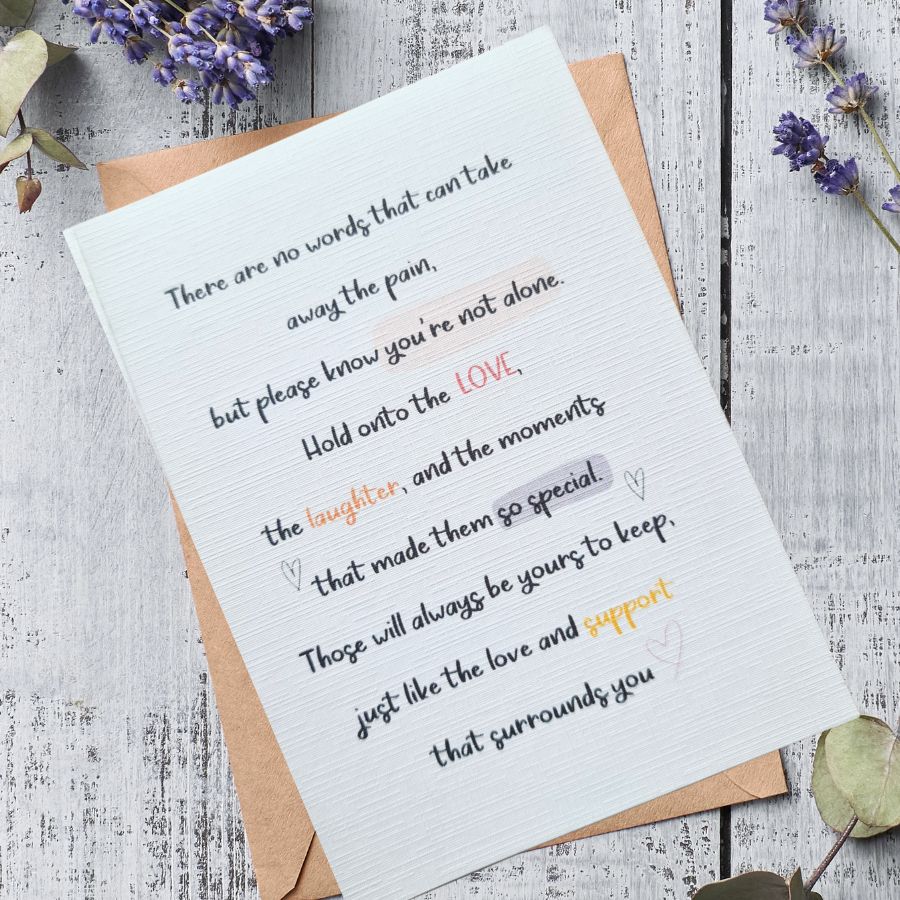 There are no words that can take
away the pain,
but please know you're not alone.
Hold onto the LOVE,
the laughter, and the moments
that made them so special.
Those will always be yours to keep,
just like the love and support
that surrounds you